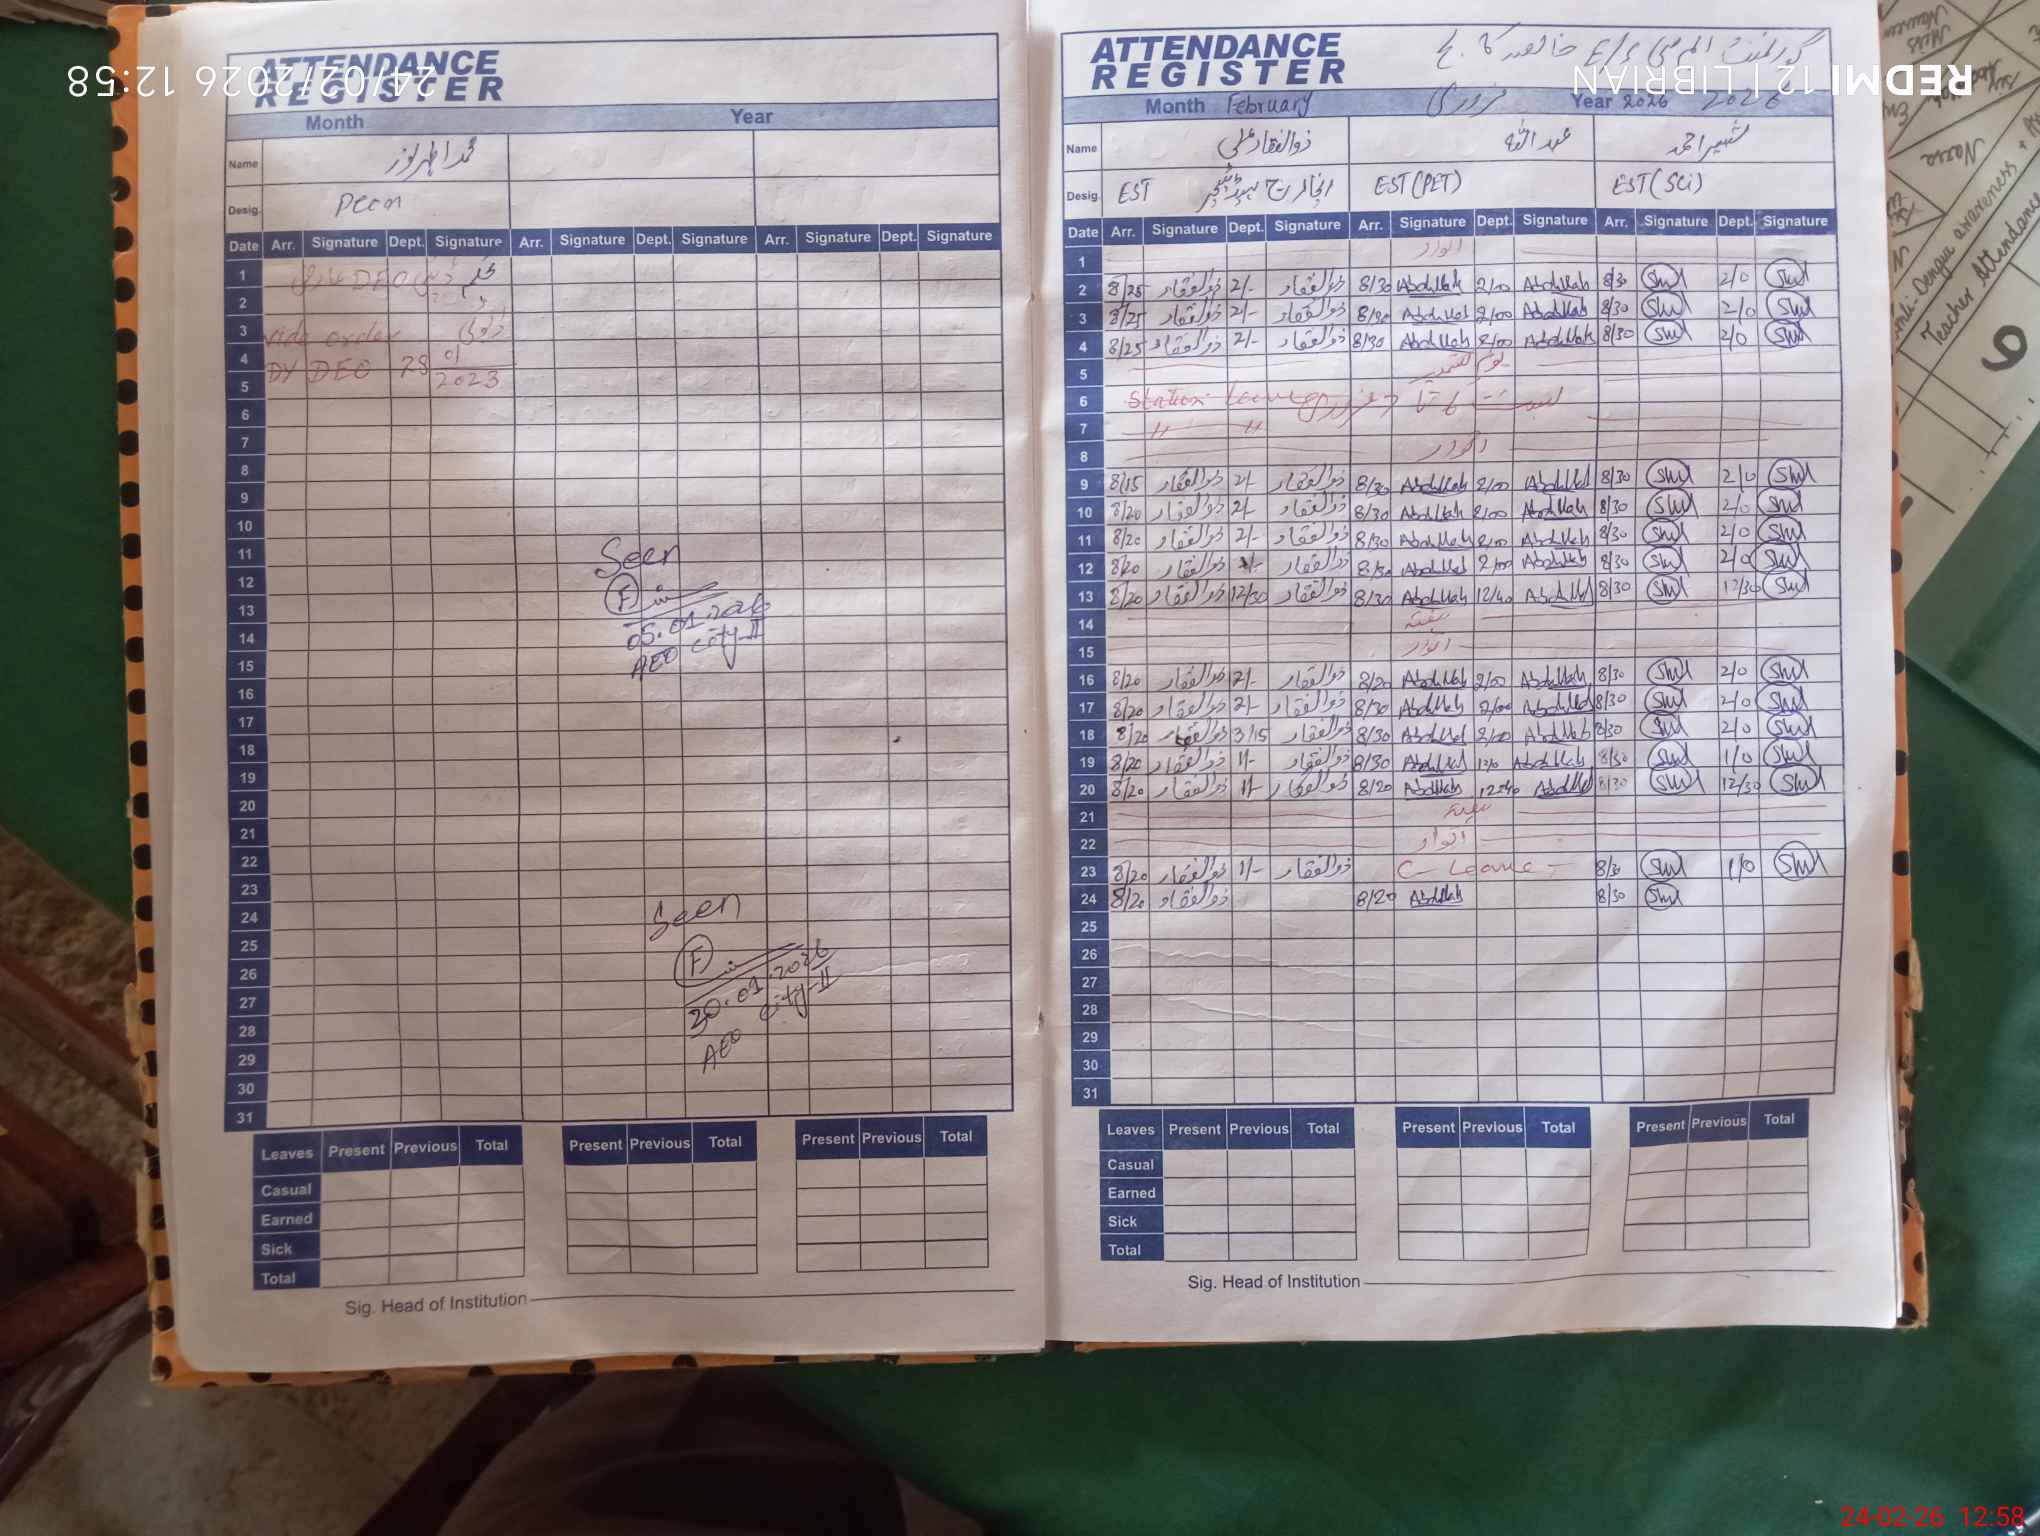 24/02/2026 12:58
ATTENDANCE
REGISTER
Month Year
Name
Desig. Peon
Date Arr. Signature Dept. Signature Arr. Signature Dept. Signature Arr. Signature Dept. Signature
1 DEO
2
3 vide order
4 DY DEO 28 01
5 2023
6
7
8
9
10
11
12
13
14
15
16
17
18
19
20
21
22
23
24
25
26
27
28
29
30
31
Seen
F
05.01.2026
AEO City-II
Seen
F
20.01.2026
AEO City-II
Leaves Present Previous Total Present Previous Total Present Previous Total
Casual
Earned
Sick
Total
Sig. Head of Institution
REDMI 12 | LIBRIAN
ATTENDANCE
REGISTER
Month February فروری Year 2026 2026
Name ذوالفقار علی عبداللہ شبیر احمد
Desig. EST انچارج ہیڈ ٹیچر EST (PET) EST (Sci)
Date Arr. Signature Dept. Signature Arr. Signature Dept. Signature Arr. Signature Dept. Signature
1 اتوار
2 8/25 ذوالفقار 2/- ذوالفقار 8/30 Abdullah 2/00 Abdullah 8/30 2/0
3 8/25 ذوالفقار 2/- ذوالفقار 8/30 Abdullah 2/00 Abdullah 8/30 2/0
4 8/25 ذوالفقار 2/- ذوالفقار 8/30 Abdullah 2/00 Abdullah 8/30 2/0
5 یوم کشمیر
6 Station Leave
7 " "
8 اتوار
9 8/15 ذوالفقار 2/- ذوالفقار 8/30 Abdullah 2/00 Abdullah 8/30 2/0
10 8/20 ذوالفقار 2/- ذوالفقار 8/30 Abdullah 2/00 Abdullah 8/30 2/0
11 8/20 ذوالفقار 2/- ذوالفقار 8/30 Abdullah 2/00 Abdullah 8/30 2/0
12 8/20 ذوالفقار ذوالفقار 8/30 Abdullah 2/00 Abdullah 8/30 2/0
13 8/20 ذوالفقار 12/30 ذوالفقار 8/30 Abdullah 12/40 Abdullah 8/30 12/30
14 ہفتہ
15 اتوار
16 8/20 ذوالفقار 2/- ذوالفقار 8/20 Abdullah 2/00 Abdullah 8/30 2/0
17 8/20 ذوالفقار 2/- ذوالفقار 8/30 Abdullah 2/00 Abdullah 8/30 2/0
18 8/20 ذوالفقار 3/15 ذوالفقار 8/30 Abdullah 2/00 Abdullah 8/30 2/0
19 8/20 ذوالفقار 1/- ذوالفقار 8/30 Abdullah Abdullah 8/30 1/0
20 8/20 ذوالفقار 1/- ذوالفقار 8/20 Abdullah 12:40 Abdullah 8/30 12/30
21 ہفتہ
22 اتوار
23 8/20 ذوالفقار 1/- ذوالفقار C- Leave - 8/30 1/0
24 8/20 ذوالفقار 8/20 Abdullah 8/30
25
26
27
28
29
30
31
Leaves Present Previous Total Present Previous Total Present Previous Total
Casual
Earned
Sick
Total
Sig. Head of Institution
Teacher Attendance
24-02-26 12:58